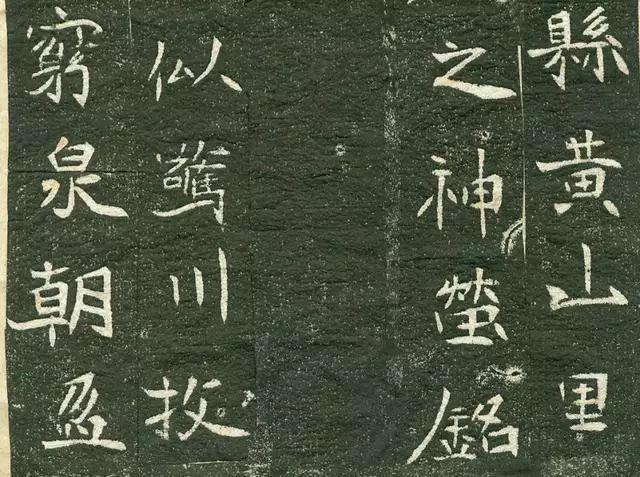 縣黃山里
之神螢銘
似驚川
窮泉朝盈